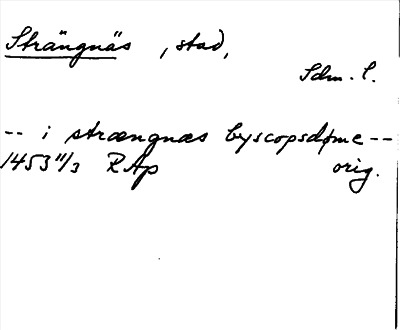 Strängnäs, stad,
Sdm. l.
-- i strængnæs byscopsdøme --
1453 11/3 RAp orig.